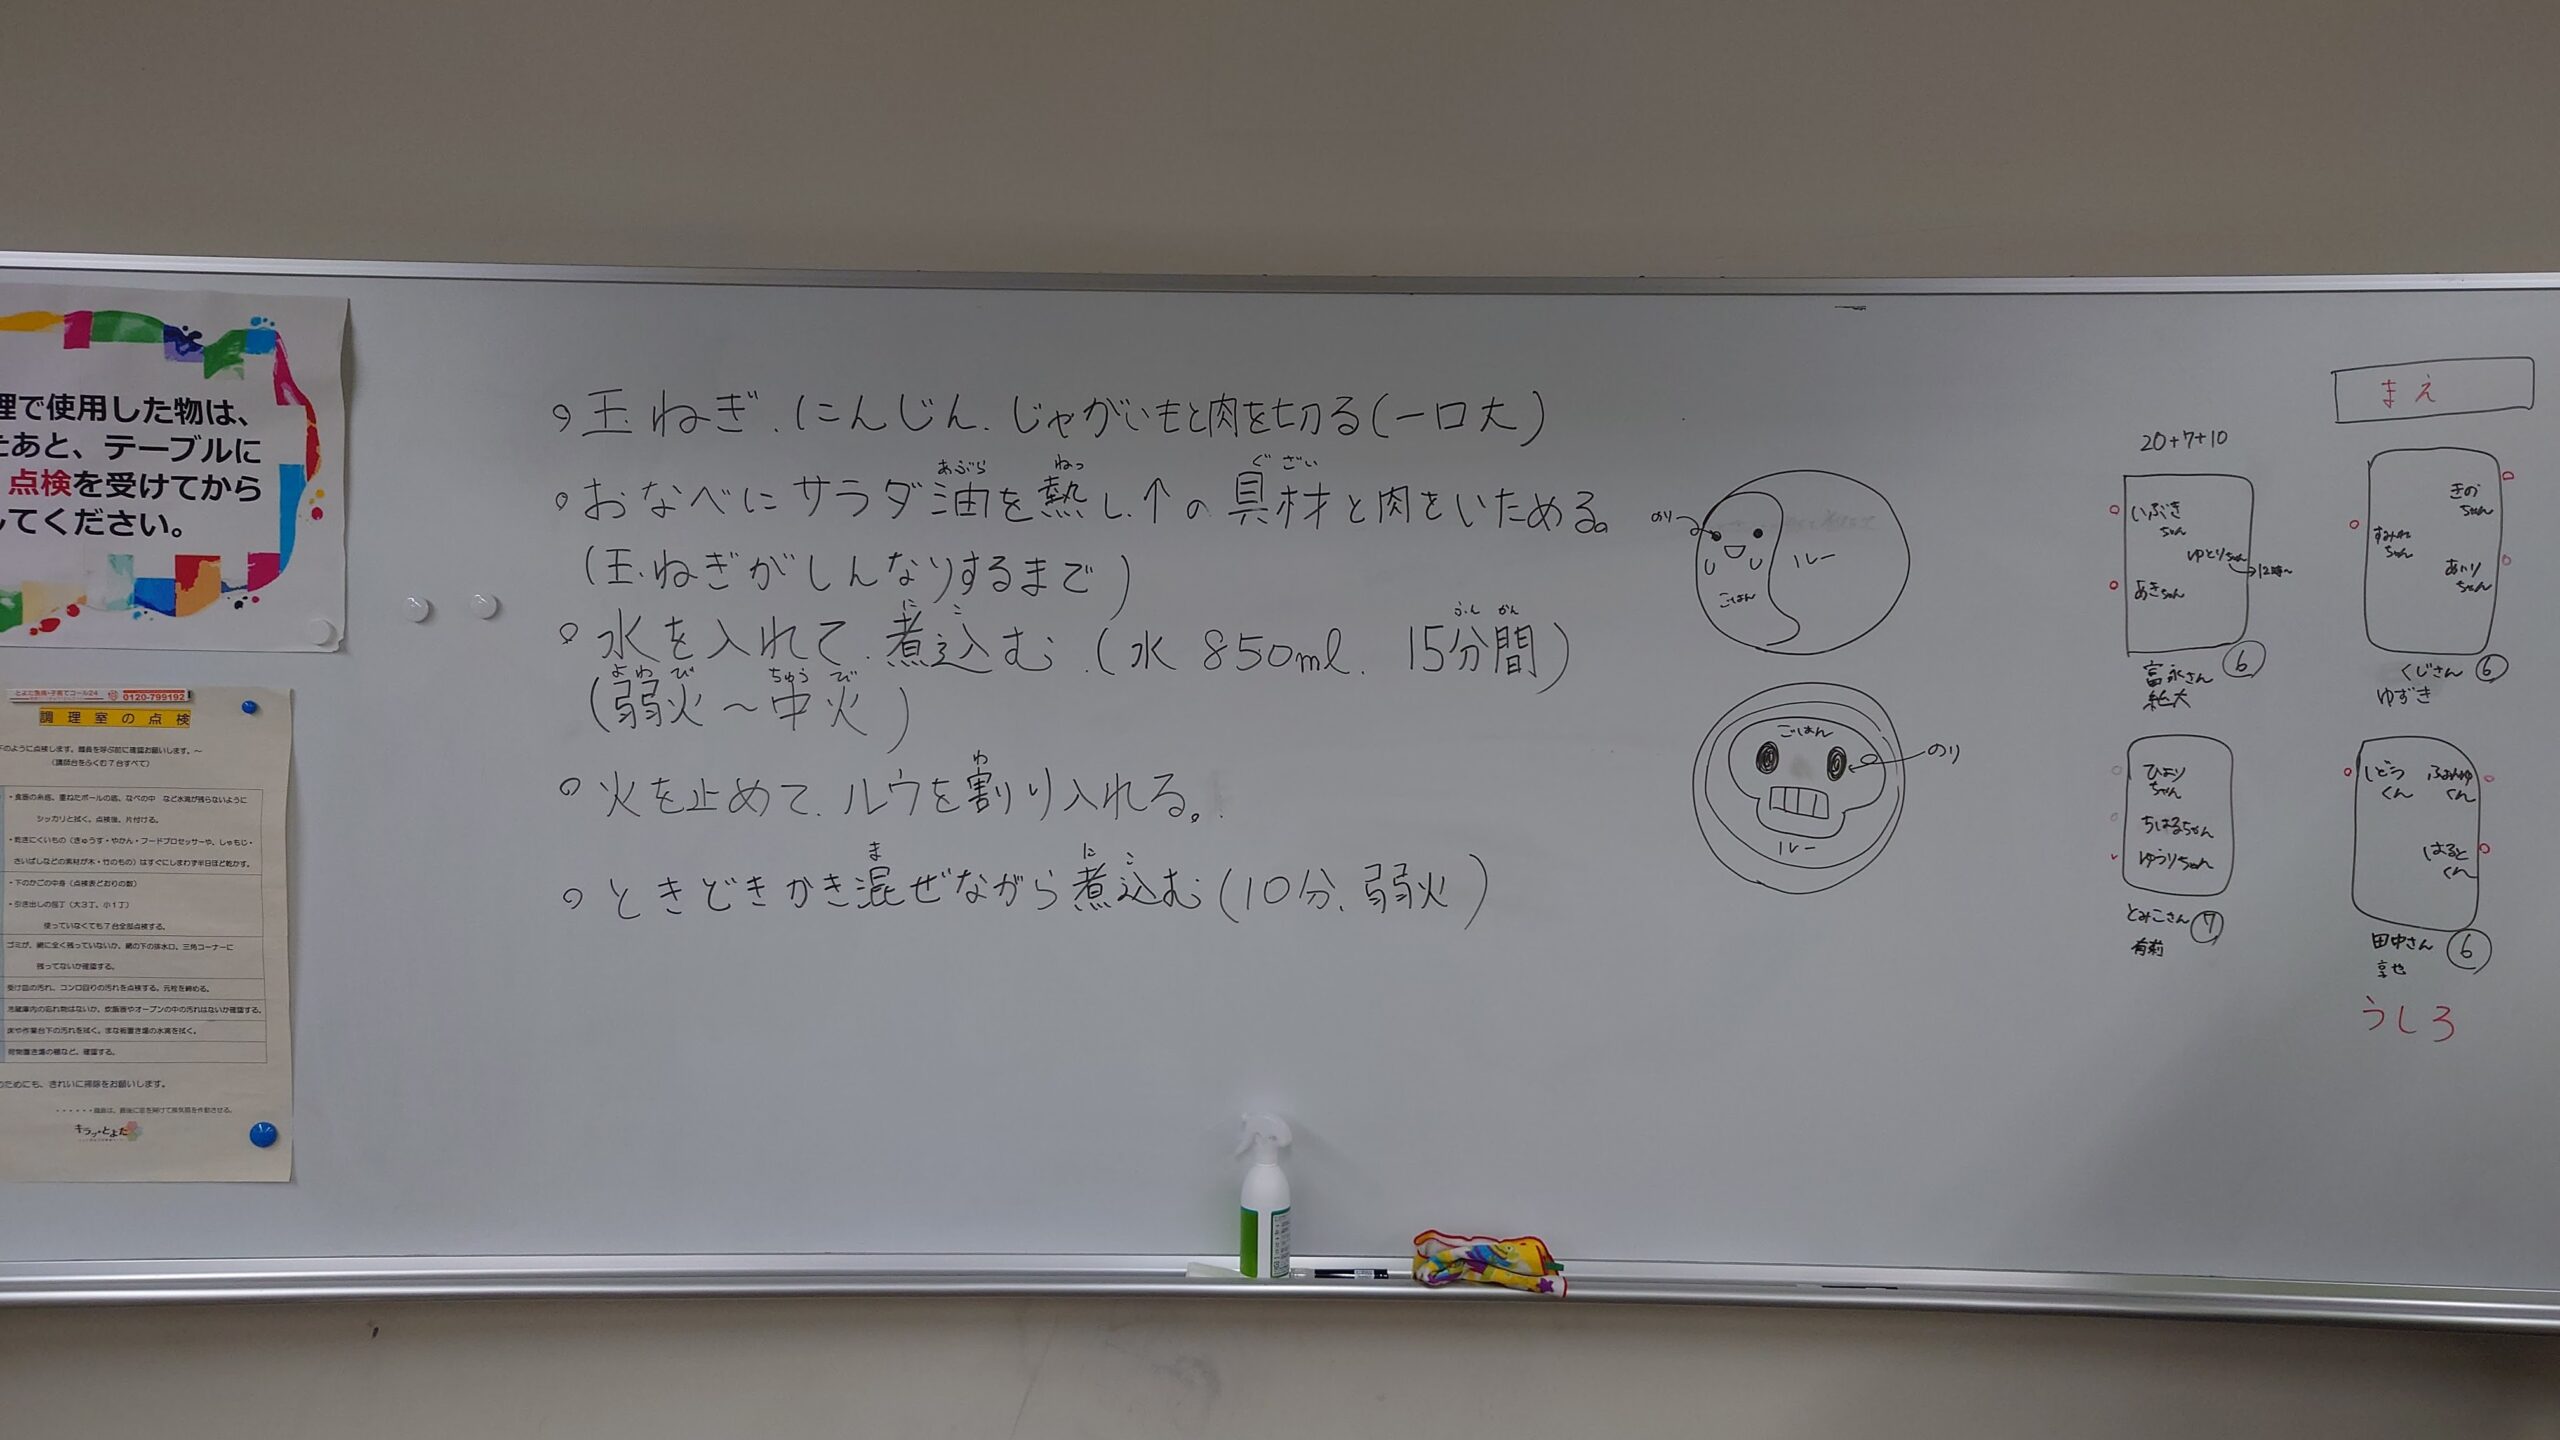 理で使用した物は、
たあと、テーブルに
点検を受けてから
してください。
とよた急病・子育てコール24
0120-799192
調理室の点検
下のように点検します。職員を呼ぶ前に確認お願いします。～
（講師台をふくむ7台すべて）
・食器の糸底、重ねたボールの底、なべの中 など水滴が残らないように
シッカリと拭く。点検後、片付ける。
・乾きにくいもの（きゅうす・やかん・フードプロセッサーや、しゃもじ・
さいばしなどの素材が木・竹のもの）はすぐにしまわず半日ほど乾かす。
・下のかごの中身（点検表どおりの数）
・引き出しの包丁（大3丁、小1丁）
使っていなくても7台全部点検する。
ゴミが、網に全く残っていないか、網の下の排水口、三角コーナーに
残ってないか確認する。
受け皿の汚れ、コンロ回りの汚れを点検する。元栓を締める。
冷蔵庫内の忘れ物はないか、炊飯器やオーブンの中の汚れはないか確認する。
床や作業台下の汚れを拭く。まな板置き場の水滴を拭く。
荷物置き場の棚など、確認する。
のためにも、きれいに掃除をお願いします。
・・・・・・職員は、最後に窓を開けて換気扇を作動させる。
キラッ☆とよた
○玉ねぎ、にんじん、じゃがいもと肉を切る(一口大)
あぶら ねっ ぐざい
○おなべにサラダ油を熱し、↑の具材と肉をいためる。
(玉ねぎがしんなりするまで)
に こ ふん かん
○水を入れて、煮込む、(水 850ml、15分間)
よわ び ちゅう び
(弱火～中火)
わ
○火を止めて、ルウを割り入れる。
ま に こ
○ときどきかき混ぜながら煮込む(10分、弱火)
のり
ルー
ごはん
ごはん
のり
ルー
まえ
20+7+10
いぶき
ちゃん
ゆとりちゃん
→12時～
あきちゃん
富永さん ⑥
きの
ちゃん
すみれ
ちゃん
あいり
ちゃん
くじさん ⑥
ゆずき
ひより
ちゃん
ちはるちゃん
ゆうりちゃん
とみこさん ⑦
くん
くん
はると
くん
田中さん ⑥
享也
うしろ